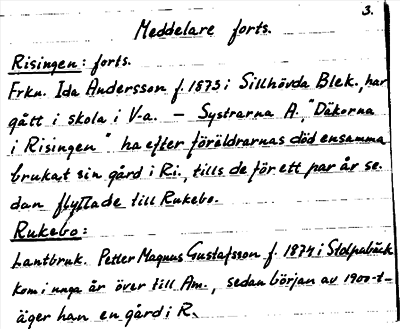 3.
Meddelare forts.
Risingen: forts.
Frkn. Ida Andersson f. 1873 i Sillhövda Blek., har
gått i skola i V-a. — Systrarna A., "Däkorna
i Risingen" ha efter föräldrarnas död ensamma
brukat sin gård i Ri., tills de för ett par år se-
dan flyttade till Rukebo.
Rukebo:
Lantbruk. Petter Magnus Gustafsson f. 1874 i Stolpabäck
kom i unga år över till Am., sedan början av 1900-t—
äger han en gård i R.